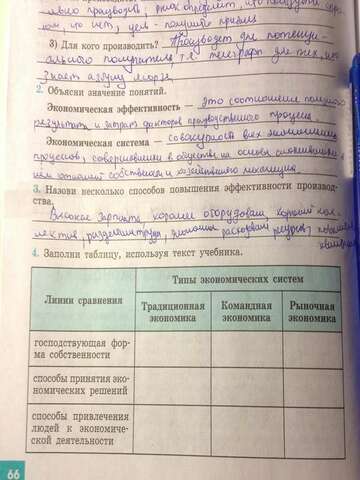 производ
3) Для кого производить? Производят для потенци-
ального покупателя т.е. телеграф для тех, кто
знает азбуку морзе.
2. Объясни значение понятий.
Экономическая эффективность — это соотношение
результата и затрат факторов производственного процесса.
Экономическая система — совокупность всех экономических
процессов, совершающихся в обществе на основе сложившихся в
нём отношений собственности и хозяйственного механизма
3. Назови несколько способов повышения эффективности производ-
ства.
Высокая зарплата, хороший кол-
лектив, разделение труда, ресурсы,
4. Заполни таблицу, используя текст учебника.
Линии сравнения
Типы экономических систем
Традиционная экономика
Командная экономика
Рыночная экономика
господствующая фор-
ма собственности
способы принятия эко-
номических решений
способы привлечения
людей к экономиче-
ской деятельности
66